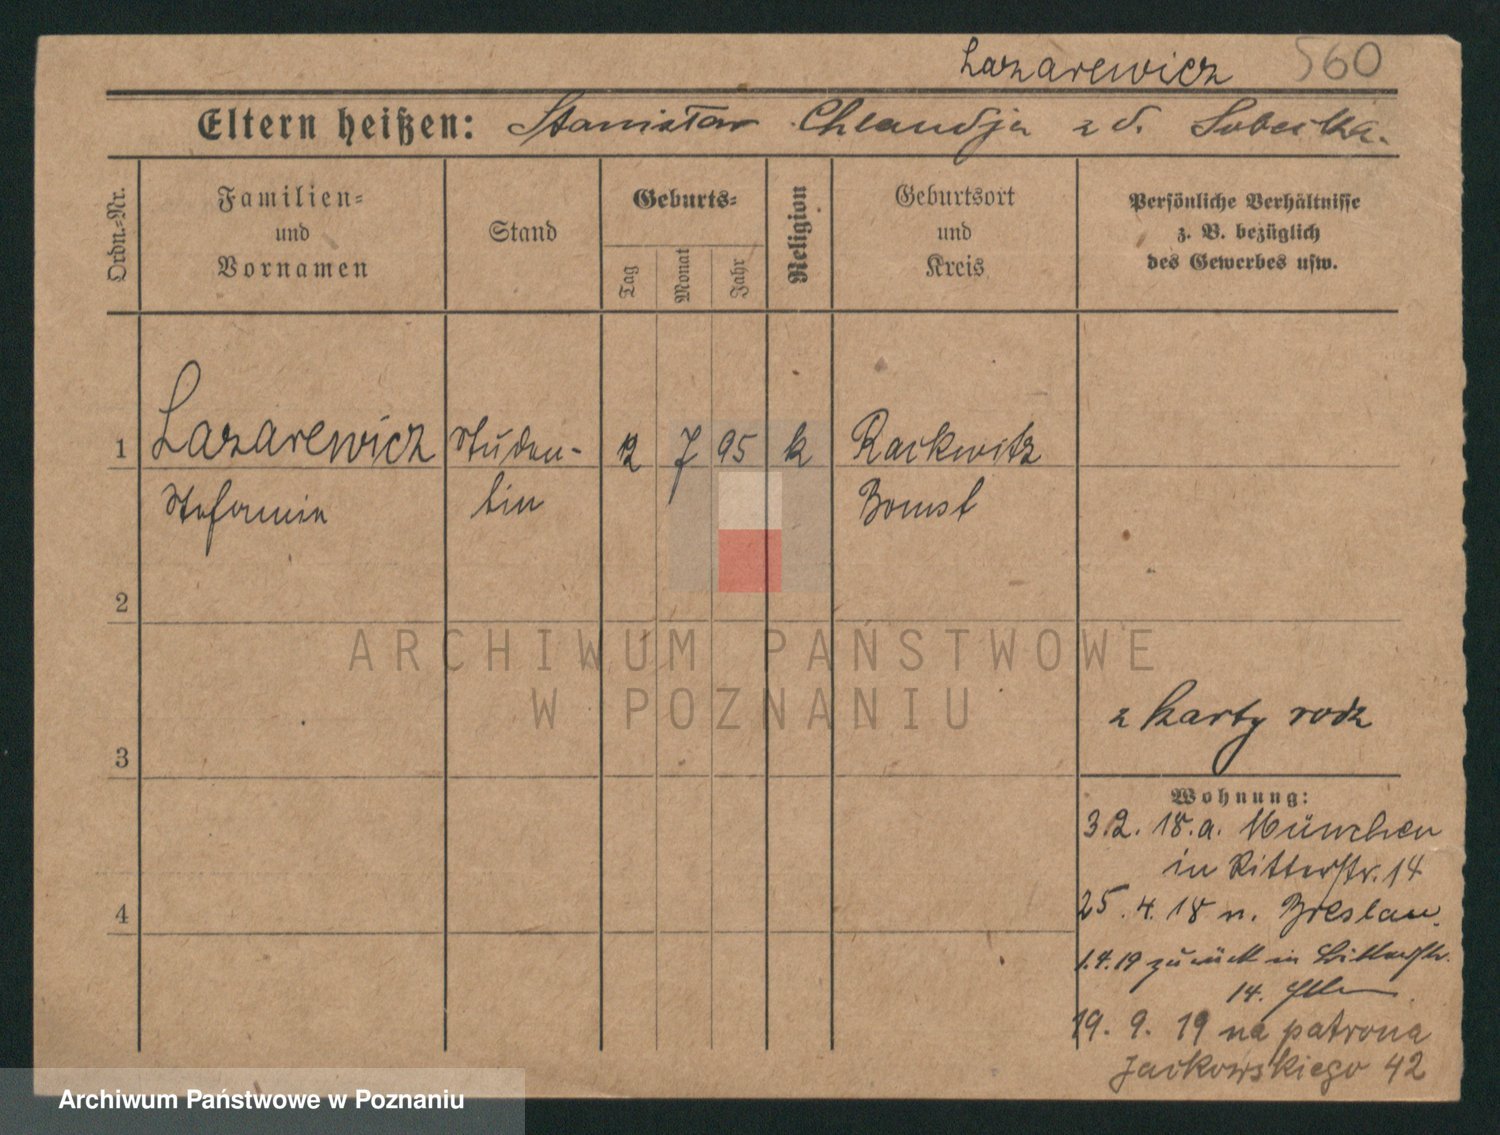 Lazarewicz 560
Eltern heißen: Stanisław Chlandja z d. Sobecka.
Ordn.=Nr.
Familien=
und
Vornamen
Stand
Geburts=
Tag
Monat
Jahr
Religion
Geburtsort
und
Kreis
Persönliche Verhältnisse
z. B. bezüglich
des Gewerbes usw.
1 Lazarewicz Studen- 12 7 95 k Rackwitz
Stefanie tin Bomst
2
3
z karty rodz
Wohnung:
3 2. 18. a. München
in Ritterstr. 14
4
25. 4. 18 n. Breslau.
1.4.19 zurück in Ritterstr.
14.
19. 9. 19 na patrona
Jackowskiego 42
ARCHIWUM PAŃSTWOWE
W POZNANIU
Archiwum Państwowe w Poznaniu